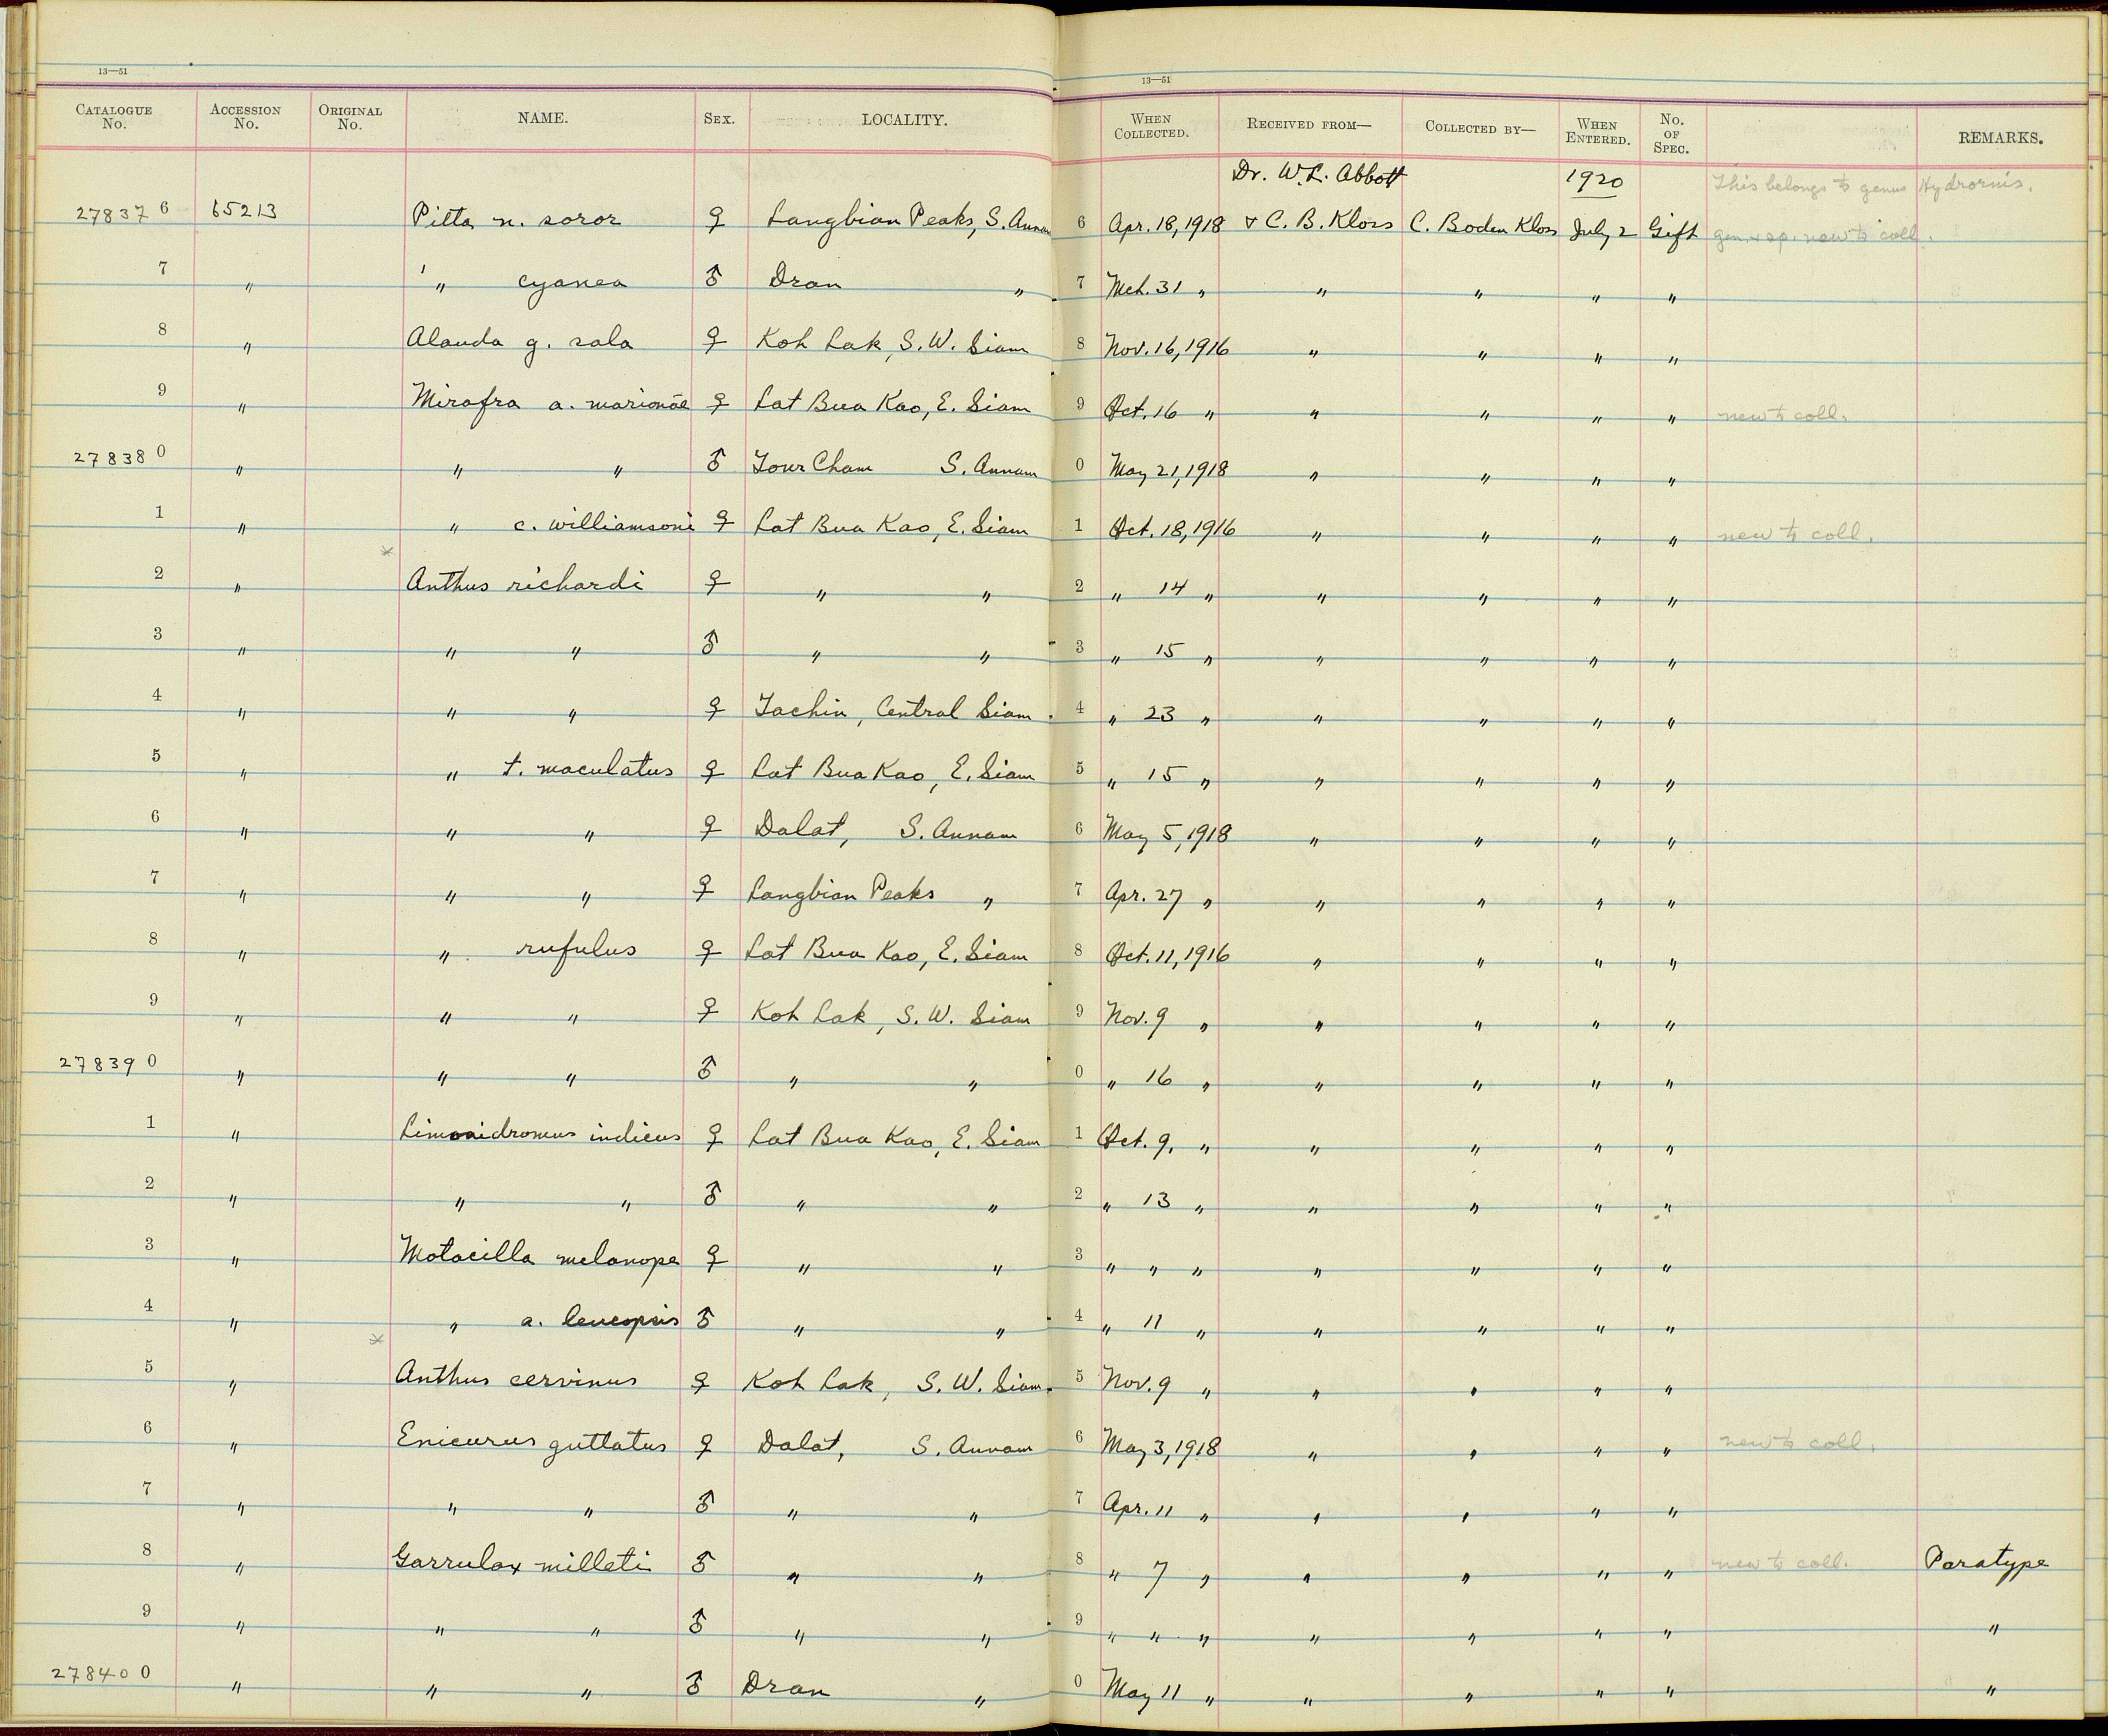 13—51 13—51
CATALOGUE No. ACCESSION No. ORIGINAL No. NAME. SEX. LOCALITY. WHEN COLLECTED. RECEIVED FROM— COLLECTED BY— WHEN ENTERED. No. OF SPEC. REMARKS.
Dr. W. L. Abbott 1920 This belongs to genus Hydrornis.
27837 6 65213 Pitta n. soror ♀ Langbian Peaks, S. Annam 6 Apr. 18, 1918 & C. B. Kloss C. Boden Kloss July 2 Gift gen. & sp. new to coll.
7 " " cyanea ♂ Dran " 7 Mch. 31 " " " " "
8 " Alauda g. sala ♀ Koh Lak, S.W. Siam 8 Nov. 16, 1916 " " " "
9 " Mirafra a. marionae ♀ Lat Bua Kao, E. Siam 9 Oct. 16 " " " " " new to coll.
27838 0 " " " ♂ Tour Cham S. Annam 0 May 21, 1918 " " " "
1 " " c. williamsoni ♀ Lat Bua Kao, E. Siam 1 Oct. 18, 1916 " " " " new to coll.
2 " * Anthus richardi ♀ " " 2 " 14 " " " " "
3 " " " ♂ " " 3 " 15 " " " " "
4 " " " ♀ Tachin, Central Siam. 4 " 23 " " " " "
5 " " t. maculatus ♀ Lat Bua Kao, E. Siam 5 " 15 " " " " "
6 " " " ♀ Dalat, S. Annam 6 May 5, 1918 " " " "
7 " " " ♀ Langbian Peaks " 7 Apr. 27 " " " " "
8 " " rufulus ♀ Lat Bua Kao, E. Siam 8 Oct. 11, 1916 " " " "
9 " " " ♀ Koh Lak, S.W. Siam 9 Nov. 9 " " " " "
27839 0 " " " ♂ " " 0 " 16 " " " " "
1 " Limonidromus indicus ♀ Lat Bua Kao, E. Siam 1 Oct. 9, " " " " "
2 " " " ♂ " " 2 " 13 " " " " "
3 " Motacilla melanope ♀ " " 3 " " " " " " "
4 " " a. leucopsis ♂ " " 4 " 11 " " " " "
5 " * Anthus cervinus ♀ Koh Lak, S.W. Siam. 5 Nov. 9 " " " " "
6 " Enicurus guttatus ♀ Dalat, S. Annam 6 May 3, 1918 " " " " new to coll.
7 " " " ♂ " " 7 Apr. 11 " " " " "
8 " Garrulax milleti ♂ " " 8 " 7 " " " " " new to coll. Paratype
9 " " " ♂ " " 9 " " " " " " " "
27840 0 " " " ♂ Dran " 0 May 11 " " " " " "